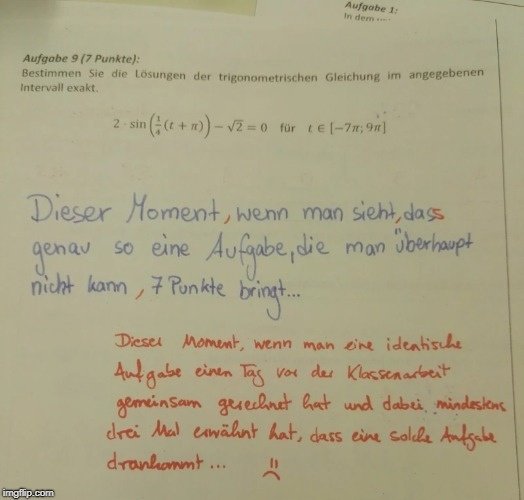 Aufgabe 1:
In dem ....
Aufgabe 9 (7 Punkte):
Bestimmen Sie die Lösungen der trigonometrischen Gleichung im angegebenen
Intervall exakt.
2 · sin(¼(t + π)) − √2 = 0 für t ∈ [−7π; 9π]
Dieser Moment, wenn man sieht, dass
genau so eine Aufgabe, die man überhaupt
nicht kann, 7 Punkte bringt...
Dieser Moment, wenn man eine identische
Aufgabe einen Tag vor der Klassenarbeit
gemeinsam gerechnet hat und dabei mindestens
drei Mal erwähnt hat, dass eine solche Aufgabe
drankommt ...
imgflip.com